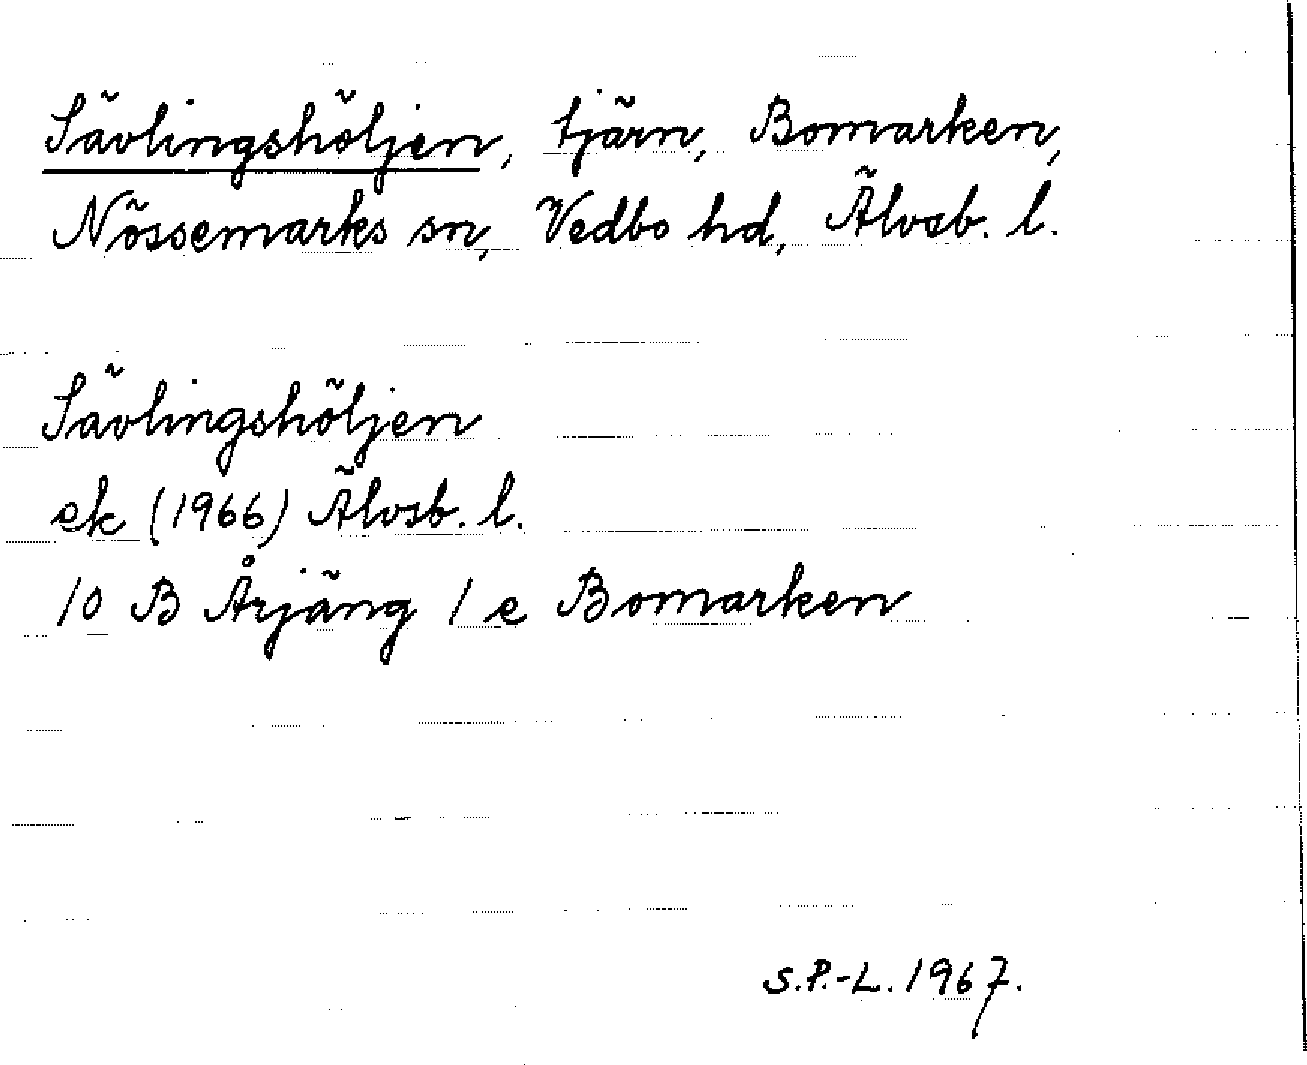 Sävlingshöljen, tjärn, Bomarken,
Nössemarks sn, Vedbo hd, Älvsb. l.
Sävlingshöljen
ek (1966) Älvsb. l.
10 B Årjäng 1 e Bomarken
S.P.-L. 1967.